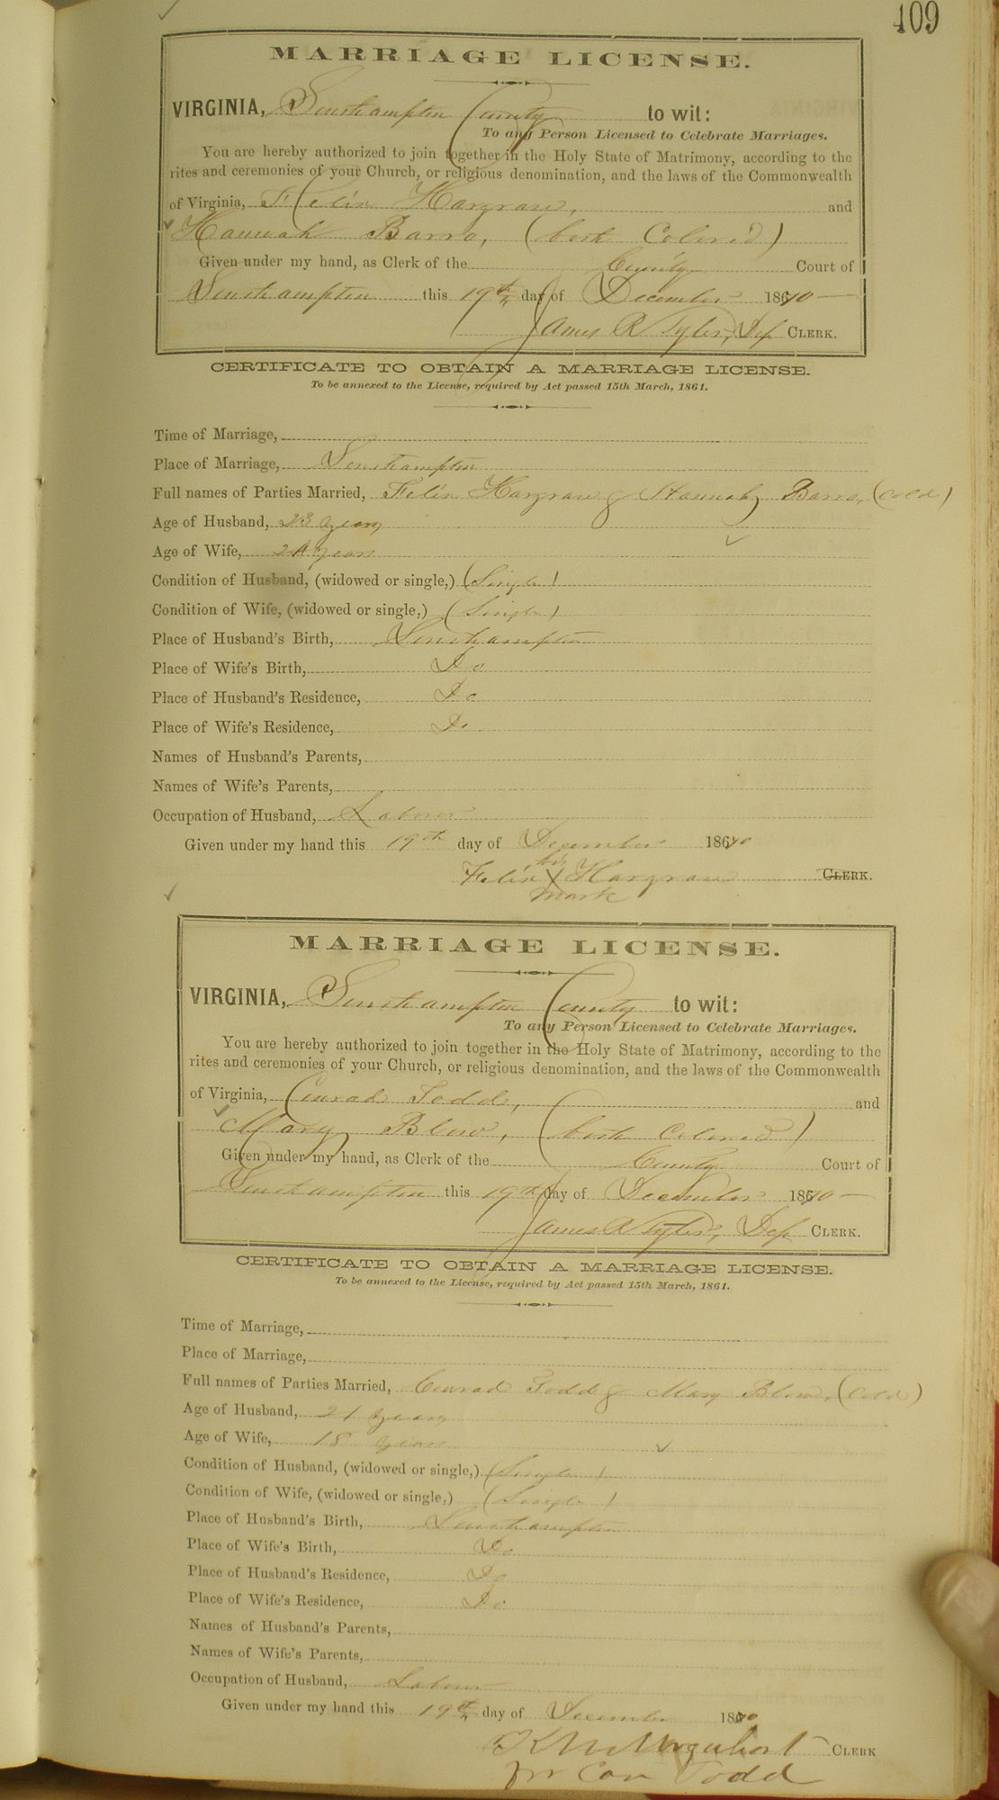 409
MARRIAGE LICENSE.
VIRGINIA, Southampton County to wit:
To any Person Licensed to Celebrate Marriages.
You are hereby authorized to join together in the Holy State of Matrimony, according to the
rites and ceremonies of your Church, or religious denomination, and the laws of the Commonwealth
of Virginia, Felix Hargrave, and
Hannah (both Colored)
Given under my hand, as Clerk of the County Court of
Southampton this 19th day of December 1870
James R Tyler, Dep CLERK.
CERTIFICATE TO OBTAIN A MARRIAGE LICENSE.
To be annexed to the License, required by Act passed 15th March, 1861.
Time of Marriage,
Place of Marriage, Southampton
Full names of Parties Married, Felix Hargrave & Hannah (Cold)
Age of Husband, 23 years
Age of Wife, 24 years
Condition of Husband, (widowed or single,) (Single)
Condition of Wife, (widowed or single,) (Single)
Place of Husband's Birth, Southampton
Place of Wife's Birth, Do
Place of Husband's Residence, Do
Place of Wife's Residence, Do
Names of Husband's Parents,
Names of Wife's Parents,
Occupation of Husband, Laborer
Given under my hand this 19th day of December 1870
his
Felix X Hargrave CLERK.
mark
MARRIAGE LICENSE.
VIRGINIA, Southampton County to wit:
To any Person Licensed to Celebrate Marriages.
You are hereby authorized to join together in the Holy State of Matrimony, according to the
rites and ceremonies of your Church, or religious denomination, and the laws of the Commonwealth
of Virginia, Conrad Todd, and
Mary Blow, (both Colored)
Given under my hand, as Clerk of the County Court of
Southampton this 19th day of December 1870
James R Tyler, Dep CLERK.
CERTIFICATE TO OBTAIN A MARRIAGE LICENSE.
To be annexed to the License, required by Act passed 15th March, 1861.
Time of Marriage,
Place of Marriage,
Full names of Parties Married, Conrad Todd & Mary Blow, (Cold)
Age of Husband, 21 years
Age of Wife, 18 years
Condition of Husband, (widowed or single,) (Single)
Condition of Wife, (widowed or single,) (Single)
Place of Husband's Birth, Southampton
Place of Wife's Birth, Do
Place of Husband's Residence, Do
Place of Wife's Residence, Do
Names of Husband's Parents,
Names of Wife's Parents,
Occupation of Husband, Laborer
Given under my hand this 19th day of December 1870
Urquhart CLERK
for Con Todd